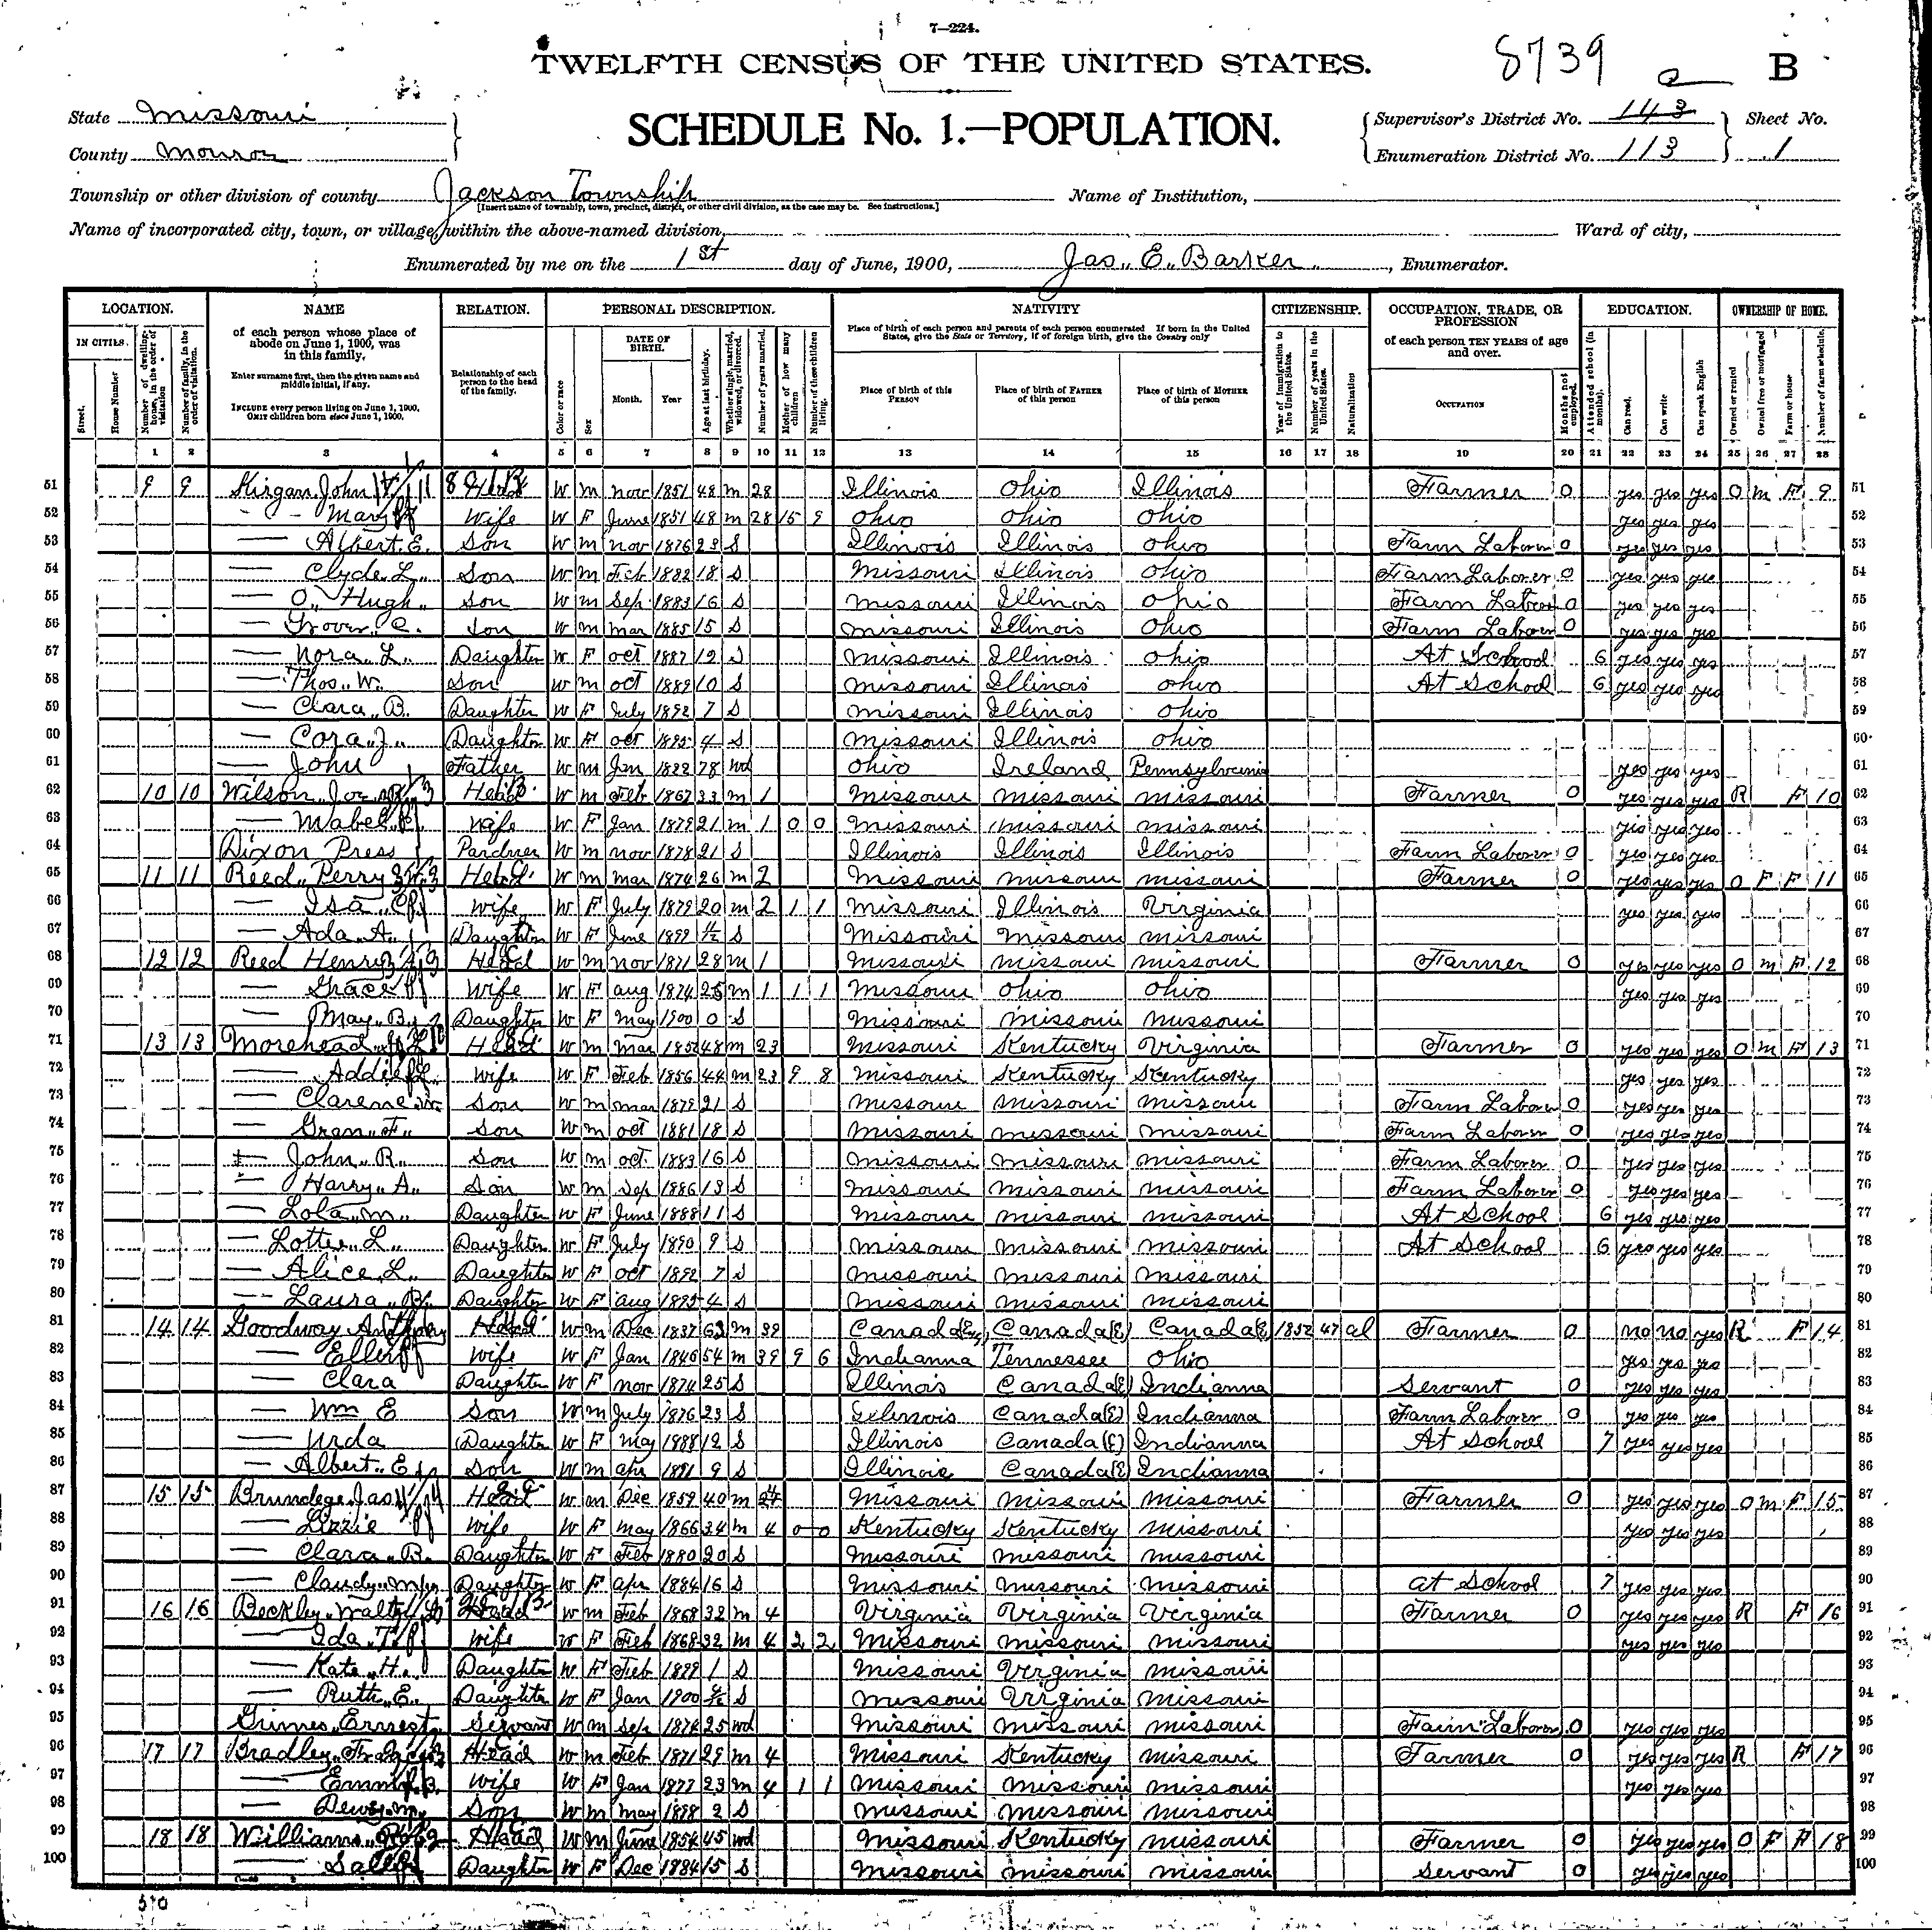 7—224.
TWELFTH CENSUS OF THE UNITED STATES.
8739
B
State Missouri
County Monroe
SCHEDULE No. 1.—POPULATION.
Supervisor's District No. 143
Enumeration District No. 113
Sheet No. 1
Township or other division of county Jackson Township
[Insert name of township, town, precinct, district, or other civil division, as the case may be. See instructions.]
Name of Institution,
Name of incorporated city, town, or village, within the above-named division,
Ward of city,
Enumerated by me on the 1st day of June, 1900, Jas. E. Barker, Enumerator.
LOCATION. NAME RELATION. PERSONAL DESCRIPTION. NATIVITY CITIZENSHIP. OCCUPATION, TRADE, OR PROFESSION EDUCATION. OWNERSHIP OF HOME.
IN CITIES. Street. House Number
Number of dwelling-house, in the order of visitation
Number of family, in the order of visitation.
of each person whose place of abode on June 1, 1900, was in this family.
Enter surname first, then the given name and middle initial, if any.
INCLUDE every person living on June 1, 1900. OMIT children born since June 1, 1900.
Relationship of each person to the head of the family.
Color or race Sex DATE OF BIRTH. Month. Year Age at last birthday. Whether single, married, widowed, or divorced. Number of years married. Mother of how many children Number of these children living.
Place of birth of each person and parents of each person enumerated If born in the United States, give the State or Territory, if of foreign birth, give the Country only
Place of birth of this PERSON Place of birth of FATHER of this person Place of birth of MOTHER of this person
Year of immigration to the United States. Number of years in the United States. Naturalization
of each person TEN YEARS of age and over.
OCCUPATION Months not employed.
Attended school (in months). Can read. Can write Can speak English
Owned or rented Owned free or mortgaged Farm or house Number of farm schedule.
1 2 3 4 5 6 7 8 9 10 11 12 13 14 15 16 17 18 19 20 21 22 23 24 25 26 27 28
51 9 9 Kirgan John Head W m nov 1851 48 m 28 Illinois Ohio Illinois Farmer 0 yes yes yes O m F 9 51
52 — Mary Wife W F June 1851 48 m 28 15 9 Ohio Ohio Ohio yes yes yes 52
53 — Albert E. Son W m nov 1876 23 S Illinois Illinois Ohio Farm Laborer 0 yes yes yes 53
54 — Clyde L. Son W m Feb 1882 18 S Missouri Illinois Ohio Farm Laborer 0 yes yes yes 54
55 — O. Hugh Son W m Sep 1883 16 S Missouri Illinois Ohio Farm Laborer 0 yes yes yes 55
56 — Grover C. Son W m mar 1885 15 S Missouri Illinois Ohio Farm Laborer 0 yes yes yes 56
57 — Nora L. Daughter W F oct 1887 12 S Missouri Illinois Ohio At School 6 yes yes yes 57
58 — Thos. W. Son W m oct 1889 10 S Missouri Illinois Ohio At School 6 yes yes yes 58
59 — Clara B. Daughter W F July 1892 7 S Missouri Illinois Ohio 59
60 — Cora J. Daughter W F oct 1895 4 S Missouri Illinois Ohio 60
61 — John Father W m Jan 1822 78 wd Ohio Ireland Pennsylvania yes yes yes 61
62 10 10 Wilson Head W m Feb 1867 33 m 1 Missouri Missouri Missouri Farmer 0 yes yes yes R F 10 62
63 — Mabel Wife W F Jan 1879 21 m 1 0 0 Missouri Missouri Missouri yes yes yes 63
64 Dixon Press Pardner W m nov 1878 21 S Illinois Illinois Illinois Farm Laborer 0 yes yes yes 64
65 11 11 Reed Perry Head W m mar 1874 26 m 2 Missouri Missouri Missouri Farmer 0 yes yes yes O F F 11 65
66 — Isa Wife W F July 1879 20 m 2 1 1 Missouri Illinois Virginia yes yes yes 66
67 — Ada A. Daughter W F June 1899 S Missouri Missouri Missouri 67
68 12 12 Reed Henry Head W m nov 1871 28 m 1 Missouri Missouri Missouri Farmer 0 yes yes yes O m F 12 68
69 — Grace Wife W F aug 1874 25 m 1 1 1 Missouri Ohio Ohio yes yes yes 69
70 — May B. Daughter W F May 1900 0 S Missouri Missouri Missouri 70
71 13 13 Morehead Head W m Mar 1852 48 m 23 Missouri Kentucky Virginia Farmer 0 yes yes yes O m F 13 71
72 — Addie Wife W F Feb 1856 44 m 23 9 8 Missouri Kentucky Kentucky yes yes yes 72
73 — Clarence Son W m mar 1879 21 S Missouri Missouri Missouri Farm Laborer 0 yes yes yes 73
74 — Gran F. Son W m oct 1881 18 S Missouri Missouri Missouri Farm Laborer 0 yes yes yes 74
75 — John R. Son W m oct. 1883 16 S Missouri Missouri Missouri Farm Laborer 0 yes yes yes 75
76 — Harry A. Son W m Sep 1886 13 S Missouri Missouri Missouri Farm Laborer 0 yes yes yes 76
77 — Lola m. Daughter W F June 1888 11 S Missouri Missouri Missouri At School 6 yes yes yes 77
78 — Lottie L. Daughter W F July 1890 9 S Missouri Missouri Missouri At School 6 yes yes yes 78
79 — Alice L. Daughter W F oct 1892 7 S Missouri Missouri Missouri 79
80 — Laura B. Daughter W F aug 1895 4 S Missouri Missouri Missouri 80
81 14 14 Goodway Anthony Head W m Dec 1837 62 m 39 Canada Canada (E) Canada 1852 47 al Farmer 0 no no yes R F 14 81
82 — Ellen Wife W F Jan 1846 54 m 39 9 6 Indianna Tennessee Ohio yes yes yes 82
83 — Clara Daughter W F nov 1874 25 S Illinois Canada (E) Indianna Servant 0 yes yes yes 83
84 — Wm E Son W m July 1876 23 S Illinois Canada (E) Indianna Farm Laborer 0 yes yes yes 84
85 — Urda Daughter W F May 1888 12 S Illinois Canada (E) Indianna At School 7 yes yes yes 85
86 — Albert E Son W m apr 1891 9 S Illinois Canada (E) Indianna 86
87 15 15 Brundege Jas Head W m Dec 1859 40 m Missouri Missouri Missouri Farmer 0 yes yes yes O m F 15 87
88 — Lizzie Wife W F May 1866 34 m 4 0 0 Kentucky Kentucky Missouri yes yes yes 88
89 — Clara B. Daughter W F Feb 1880 20 S Missouri Missouri Missouri 89
90 — Claudy Daughter W F apr 1884 16 S Missouri Missouri Missouri at School 7 yes yes yes 90
91 16 16 Beckley Head W m Feb 1868 32 m 4 Virginia Virginia Virginia Farmer 0 yes yes yes R F 16 91
92 — Ida T. Wife W F Feb 1868 32 m 4 2 2 Missouri Missouri Missouri yes yes yes 92
93 — Kate H. Daughter W F Feb 1899 1 S Missouri Virginia Missouri 93
94 — Ruth E. Daughter W F Jan 1900 S Missouri Virginia Missouri 94
95 Grimes Ernest Servant W m Sep 1874 25 wd Missouri Missouri Missouri Farm Laborer 0 yes yes yes 95
96 17 17 Bradley Head W m Feb 1871 29 m 4 Missouri Kentucky Missouri Farmer 0 yes yes yes R F 17 96
97 — Emma B. Wife W F Jan 1877 23 m 4 1 1 Missouri Missouri Missouri yes yes yes 97
98 — Dewey m. Son W m May 1898 2 S Missouri Missouri Missouri 98
99 18 18 Williams Head W m June 1854 45 wd Missouri Kentucky Missouri Farmer 0 yes yes yes O F F 18 99
100 — Daughter W F Dec 1884 15 S Missouri Missouri Missouri Servant 0 yes yes yes 100